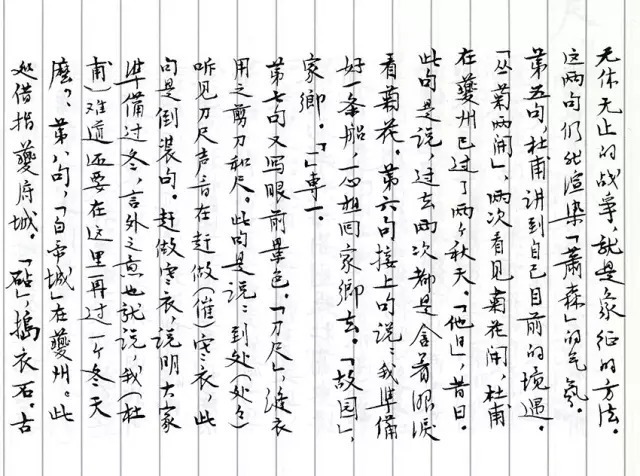 无休无止的战争，就是象征的方法。
这两句仍然渲染「萧森」的气氛。
第五句，杜甫讲到自己目前的境遇。
「丛菊两开」，两次看见菊花开，杜甫
在夔州已过了两个秋天。「他日」，昔日。
此句是说，过去两次都是含着眼泪
看菊花。第六句接上句说：我準備
好一条船，一心想回家鄉去。「故园」，
家鄉。「一」專一。
第七句又写眼前景色。「刀尺」，缝衣
用之剪刀和尺。此句是说：到处（处々）
听见刀尺声音在赶做（催）寒衣，此
句是倒装句。赶做寒衣，说明大家
準備过冬，言外之意也就说，我（杜
甫）难道还要在这里再过一个冬天
麽？，第八句，「白帝城」在夔州。此
处借指夔府城。「砧」，搗衣石。古